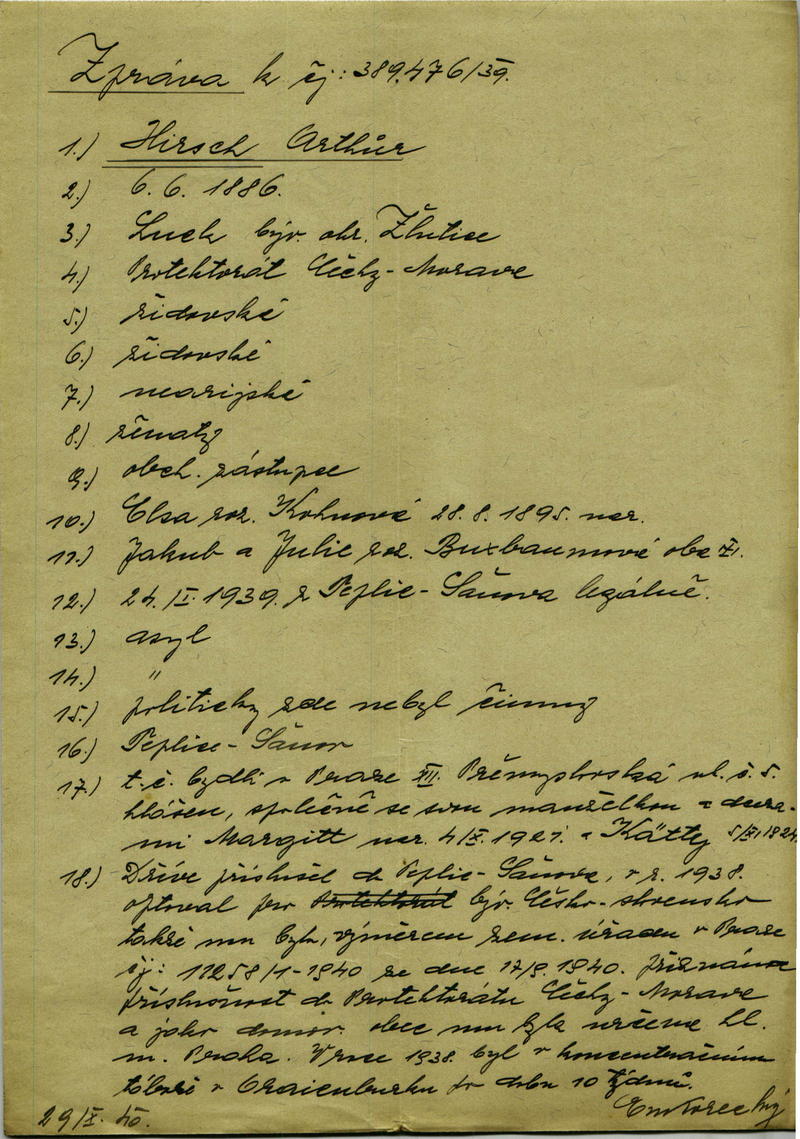 Zpráva k čj: 389.476/39.
1.) Hirsch Arthur
2.) 6. 6. 1886.
3.) Luck býv. okr. Žlutice
4.) Protektorát Čechy-Morava
5.) židovské
6.) židovské
7.) nearijské
8.) ženatý
9.) obch. zástupce
10.) Elsa roz. Kohnová 28.8.1895. nar.
11.) Jakub a Julie roz. Buxbaumová obě
12.) 24./I. 1939. z Teplic-Šanova legálně.
13.) asyl
14.) "
15.) politicky zde nebyl činný
16.) Teplice-Šanov
17.) t.č. bydlí v Praze XII. Přemyslovská ul. č. 5.
hlášen, společně se svou manželkou a dcera-
mi Margitt nar. 1921. a Kätty 1924
18.) Dříve příslušel do Teplic-Šanova, v r. 1938.
optoval pro Protektorát býv. Česko-slovensko
takže mu byla, výměrem zem. úřadu v Praze
čj: 11258/1-1940 ze dne 17/9. 1940. přiznána
příslušnost do Protektorátu Čechy-Morava
a jako domov. obec mu byla určena hl.
m. Praha. V roce 1938. byl v koncentračním
táboře v Oranienburku po dobu 10 týdnů.
29/X. 40.